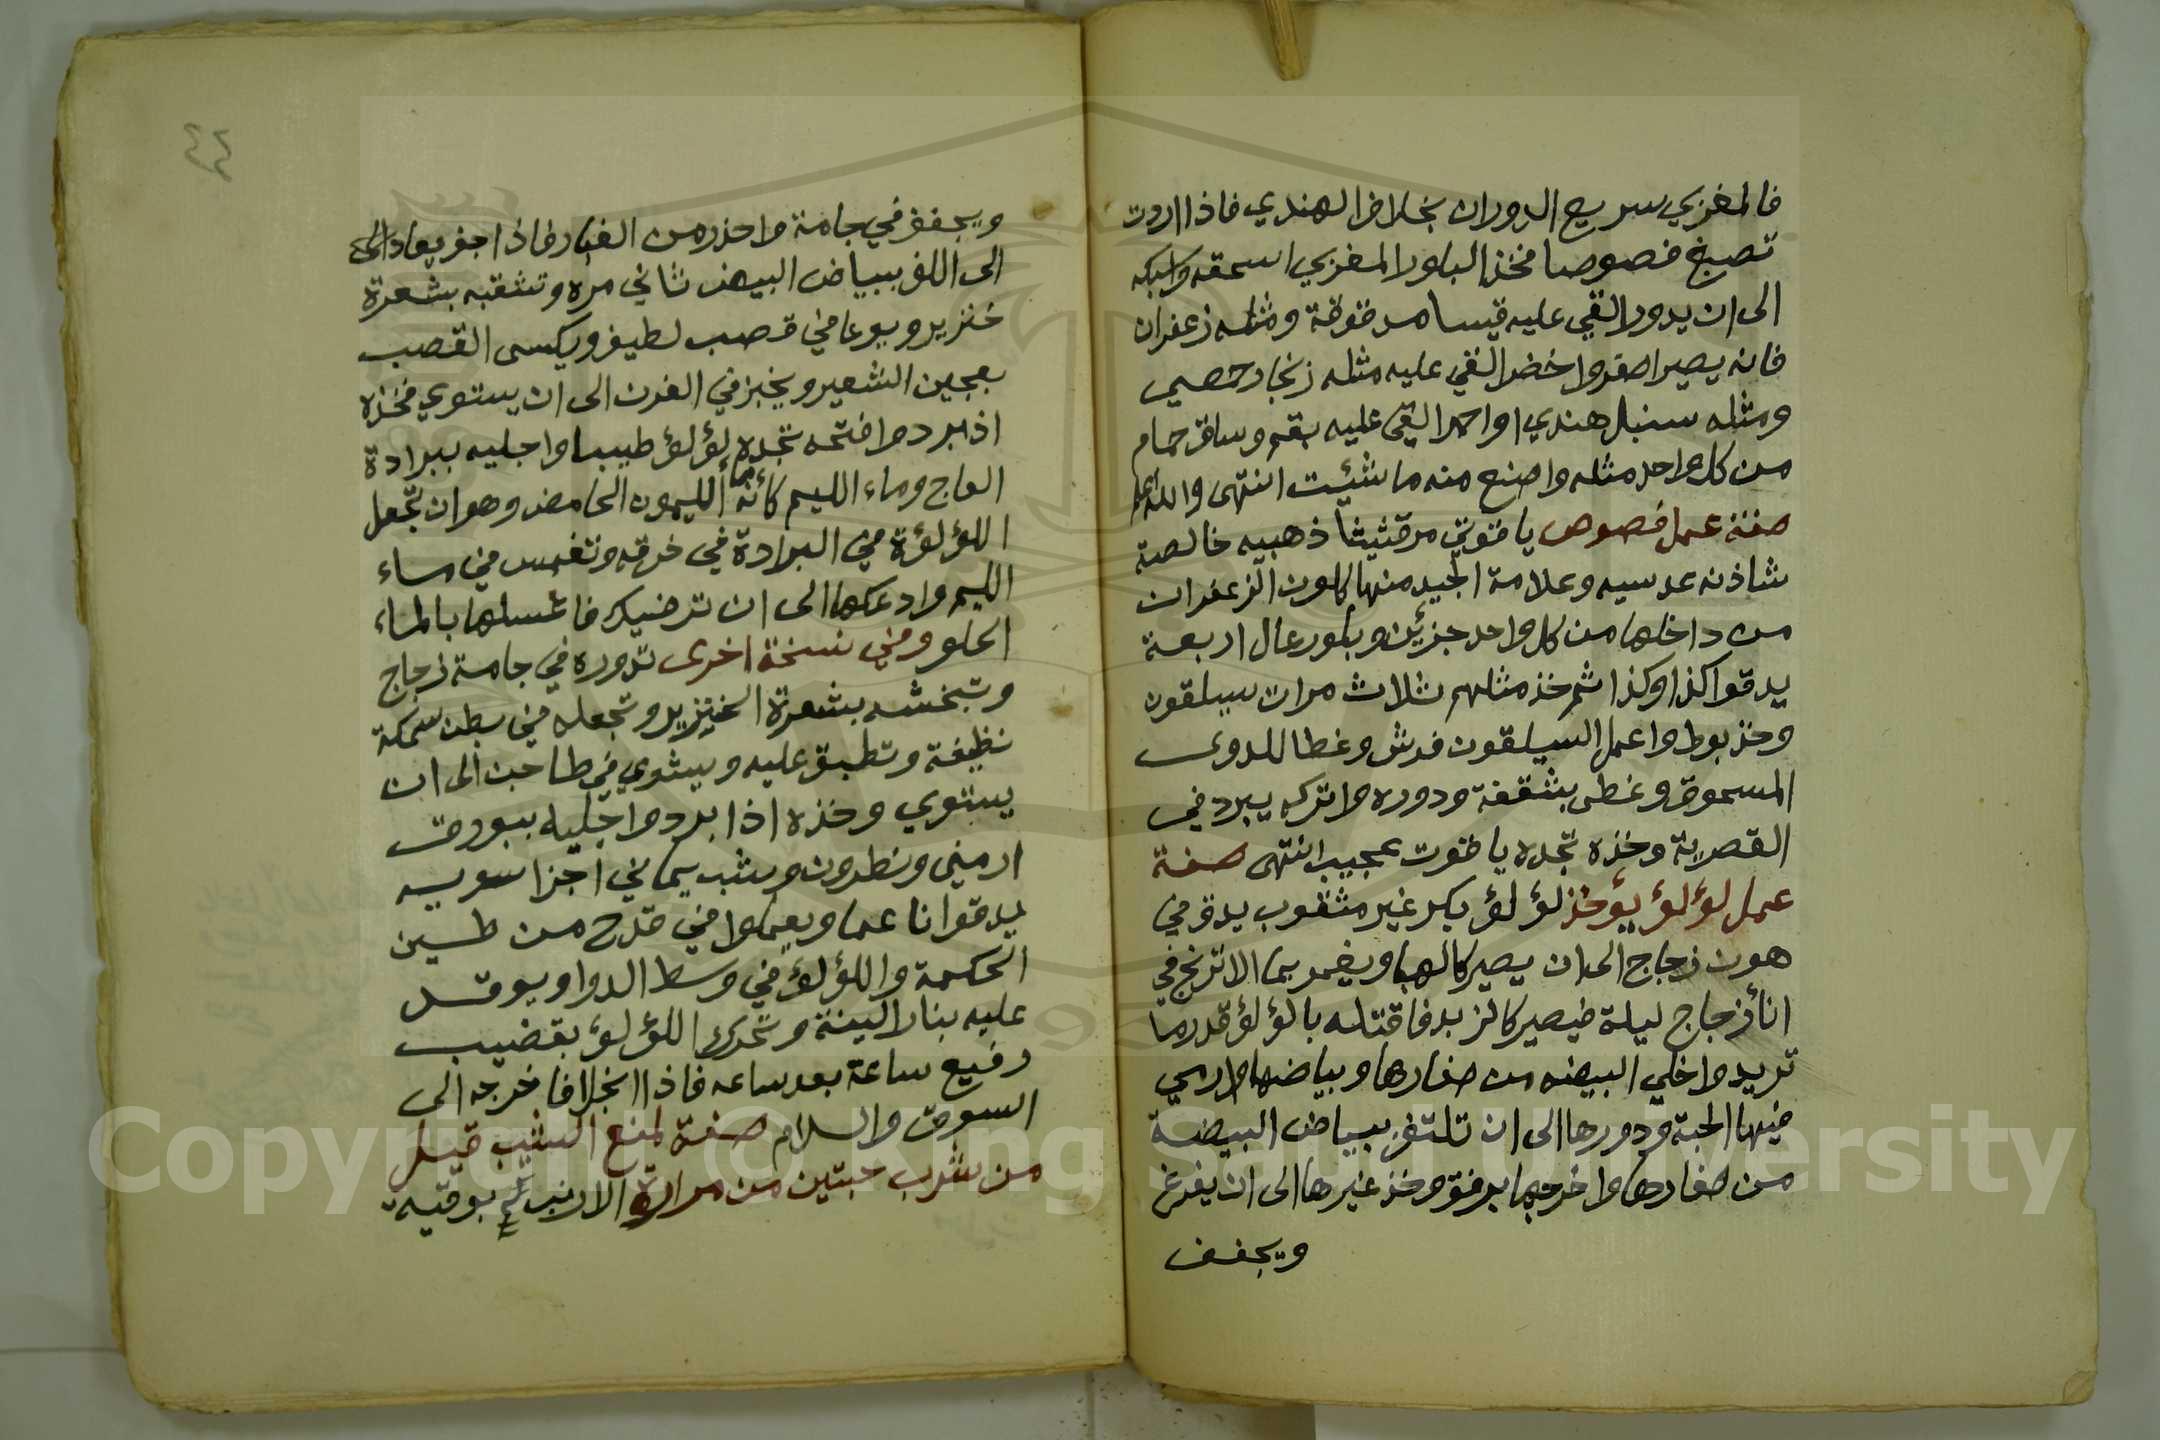 فالمغربي سريع الدوران بخلاف الهندي فاذا اردت
تصبغ فصوصا فخذ البلور المغربي اسحقه واسبكه
الى ان يدور القي عليه قيسا مدقوقة ومثله زعفران
فانه يصير اصفر واخضر القي عليه مثله زنجار حصي
ومثله سنبل هندي او احمر القي عليه بقم وساق حمام
من كل واحد مثله واصنع منه ما شئيت انتهى والله اعلم
صفة عمل فصوص ياقوتي مرقثيثا ذهبيه خالصة
شاذنه عدسيه وعلامة الجيد منها كلون الزعفران
من داخلها من كل واحد جزئين وبلور عال اربعة
يدقوا كذا وكذا ثم خذ مثلهم ثلاث مرات سيلقون
وخذ بوط واعمل السيلقون فرش وغطا للدوى
المسموق وغطى بشقفة ودوره واتركه يبرد في
القصرية وخذه تجده ياقوت عجيب انتهى صفة
عمل لؤلؤ يؤخذ لؤلؤ بكر غير مثقوب يدق في
هون زجاج الى ان يصير كالهبا ويغمر بما الاترنج في
انأ زجاج ليلة فيصير كالزبد فاقتله بالؤلؤ قدر ما
تريد واخلي البيضه من صفارها وبياضها وارمي
فيها الحبة ودورها الى ان تلتف ببياض البيضة
من صفارها واخرجها برفق وخذ غيرها الى ان يفرغ
ويجفف
ويجفف في جامة واحذر من الغبار فاذا جف يعاد الى
الى اللف ببياض البيض ثاني مره وتثقبه بشعرة
خنزير ويوعا في قصب لطيف ويكسى القصب
بعجين الشعير ويخبز في الفرن الى ان يستوي فخذه
اذ برد وافتحه تجده لؤلؤ طيبا واجليه ببرادة
العاج وماء الليم كأنه الليمون الحامض وهو ان تجعل
اللؤلؤة في البرادة في خرقه وتغمس في ماء
الليم وادعكها الى ان ترضيك فاغسلها بالماء
الحلو وفي نسخة اخرى تدوره في جامة زجاج
وتبخشه بشعرة الخنزير وتجعله في بطن سمكة
نظيفة وتطبق عليه ويشوي في طاجن الى ان
يستوي وخذه اذا برد واجليه ببورق
ارميني ونطرون وشب يماني اجزا سويه
يدقوا ناعما ويعملوا في قدح من طين
الحكمة واللؤلؤ في وسط الدوا ويوقد
عليه بنار الينة وتحرك اللؤلؤ بقضيب
رفيع ساعة بعد ساعه فاذا انجلا فاخرجه الى
السوق والسلام صفة لمنع الشيب قيل
من شرب حبتين من مرارة الارنب بوقية